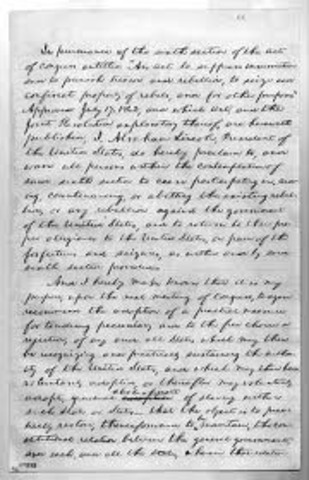 In pursuance of the sixth section of the act
of congress entitled "An act to suppress insurrection
and to punish treason and rebellion, to seize and
confiscate property of rebels, and for other purposes"
Approved July 17, 1862, and which act, and the
Joint Resolution explanatory thereof, are herewith
published, I, Abraham Lincoln, President of
the United States, do hereby proclaim to, and
warn all persons within the contemplation of
said sixth section to cease participating in, aid-
ing, countenancing, or abetting the existing rebel-
lion, or any rebellion against the government
of the United States, and to return to their pro-
per allegiance to the United States, on pain of the
forfeitures and seizures, as within and by said
sixth section provided—
And I hereby make known that it is my
purpose, upon the next meeting of Congress, to again
recommend the adoption of a practical measure
for tendering pecuniary aid to the free choice or
rejection, of any and all States which may then
be recognizing and practically sustaining the author-
ity of the United States, and which may then have
voluntarily adopted, or thereafter may voluntarily
adopt, gradual abolishment of slavery within
such State or States— that the object is to prac-
tically restore, thenceforward to maintain, the con-
stitutional relation between the general government,
and each, and all the states, wherein that relation